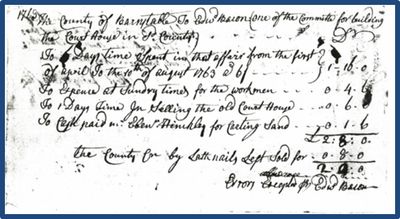 1763 The County of Barnstable To Edwd Bacon one of the Committe for building
the Court House in sd County Dr
To Days Time Spent in that affair from the first
of april To the 10th of august 1763 @ 6/ 1-16-0
To Expence at Sundry times for the workmen 0-4-6
To 1 Days Time In Selling the old Court House 0-6-0
To Cash paid Ebenr Hinckley for Carting Sand 0-1-6
£ 2-8-0
the County Cr by Lath nails Left Sold for 0-8-0
2-0-0
Errors Excepted pr Edwd Bacon